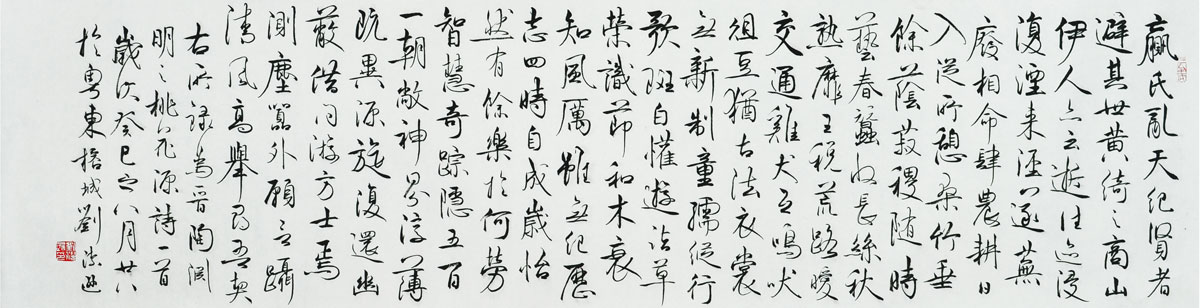 嬴氏亂天紀賢者
避其世黄綺之商山
伊人亦云逝往迹浸
復湮来逕遂蕪
廢相命肆農耕日
入從所憩桑竹垂
餘蔭菽稷随時
藝春蠶收長絲秋
熟靡王税荒路曖
交通雞犬互鳴吠
俎豆猶古法衣裳
無新制童孺縱行
歌班白懽遊詣草
榮識節和木衰
知風厲雖無紀歷
志四時自成歲怡
然有餘樂於何勞
智慧奇踪隱五百
一朝敞神界淳薄
既異源旋復還幽
蔽借问游方士焉
測塵嚻外願言躡
清風高舉尋吾契
右所録為晋陶淵
明之桃花源詩一首
歲次癸巳之八月廿八
於粤東榕城劉